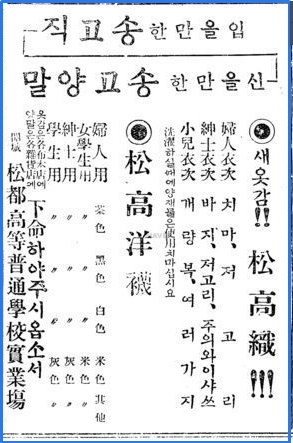 입을만한 송고직
신을만한 송고양말
새옷감!! 松高織!!!
婦人衣次 치마, 저고리
紳士衣次 바지, 저고리, 주의와이샤쓰
小兒衣次 개량복, 여러가지
洗濯하실때에양재물은使用치마십시요
松高洋襪
婦人用 茶色 黑色 白色 米色 其他
女學生用 〃 〃 〃 米色 〃
紳士用 〃 〃 〃 灰色 〃
學生用 〃 〃 〃 灰色 〃
옷감은各布木店에
양말은各雜貨店에
下命하야주시옵소서
開城 松都高等普通學校實業場